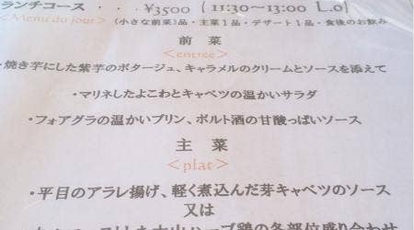 ランチコース・・・¥3500 (11:30~13:00 L.o)
<Menu du jour> (小さな前菜)1品・主菜1品・デザート1品・食後のお飲み
前菜
<entrée>
・焼き芋にした紫芋のポタージュ、キャラメルのクリームとソースを添えて
・マリネしたよこわとキャベツの温かいサラダ
・フォアグラの温かいプリン、ポルト酒の甘酸っぱいソース
主菜
<plat>
・平目のアラレ揚げ、軽く煮込んだ芽キャベツのソース
又は
大山ハーブ鶏の各部位盛り合わせ